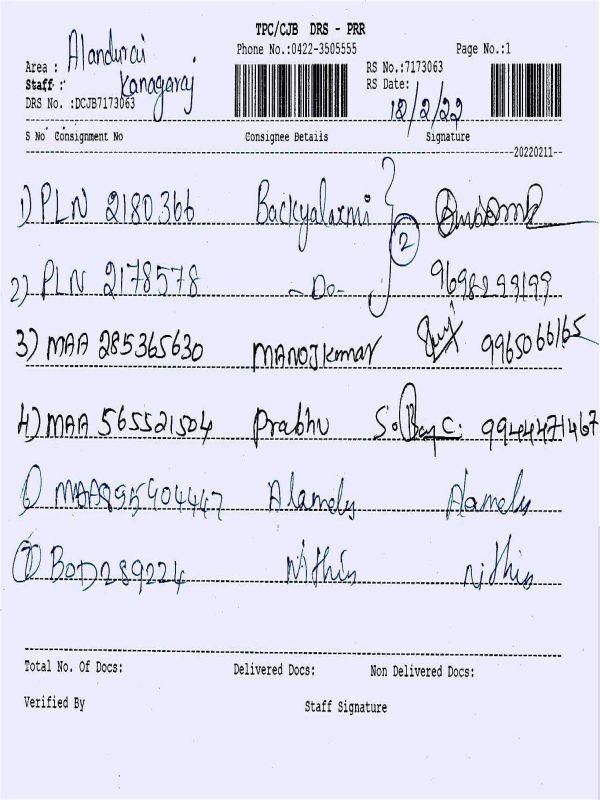 TPC/CJB DRS - PRR
Phone No.:0422-3505555 Page No.:1
Area : Alandurai
Staff : Kanagaraj
RS No.:7173063
RS Date: 12/2/22
DRS No. :DCJB7173063
S No Consignment No Consignee Details Signature
20220211
1) PLN 2180366 Backyalaxmi
2) PLN 2178578 -Do- 2 9698299199
3) MAA 285365630 MANOJkumar 9965066165
4) MAA 565521504 Prabhu 9944471467
6) MAA895404447 Alamelu Alamelu
7) BOD289224 Nithin nithin
Total No. Of Docs: Delivered Docs: Non Delivered Docs:
Verified By Staff Signature